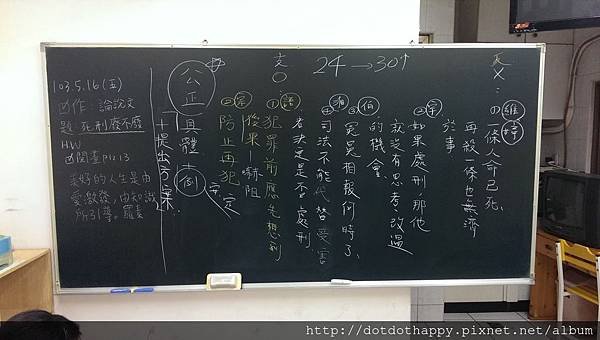 103.5.16(五)
作:論說文
題 死刑廢不廢
HW
閱畫P12.13
美好的人生是由
愛激發,由知識
所引導。羅素
反X:①維婷 一條人命已死,
再殺一條也無濟
於事
②宗 如果處刑那他
就沒有思考、改過
的機會。
③伯 冤冤相報何時了、
司法不能代替受害
者決定是否處刑
24→30↑
支O
① 犯罪前應先想到
後果→嚇阻
②宗 防止再犯
公正 具體 例
十提出方案
http://dotdothappy.pixnet.net/album